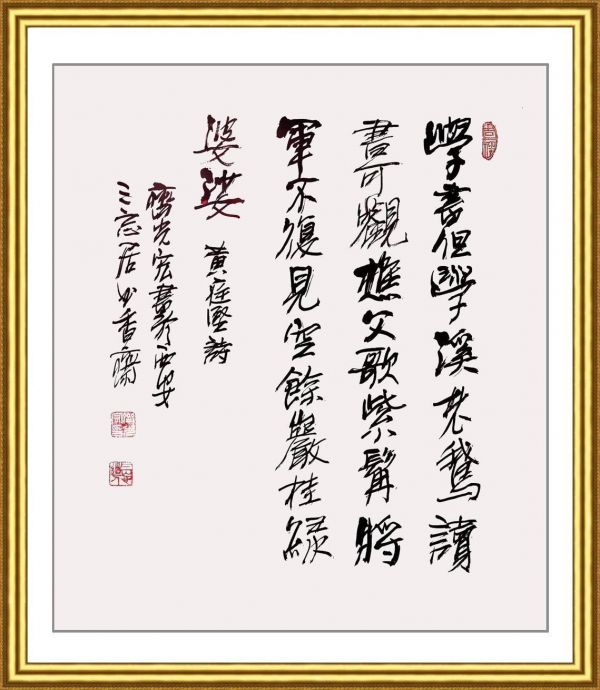 學書但學溪老鵝讀
書可觀樵父歌紫髯將
軍不復見空餘巖桂綠
婆娑 黃庭堅詩
齊光宏書於西安
三忘居香齋